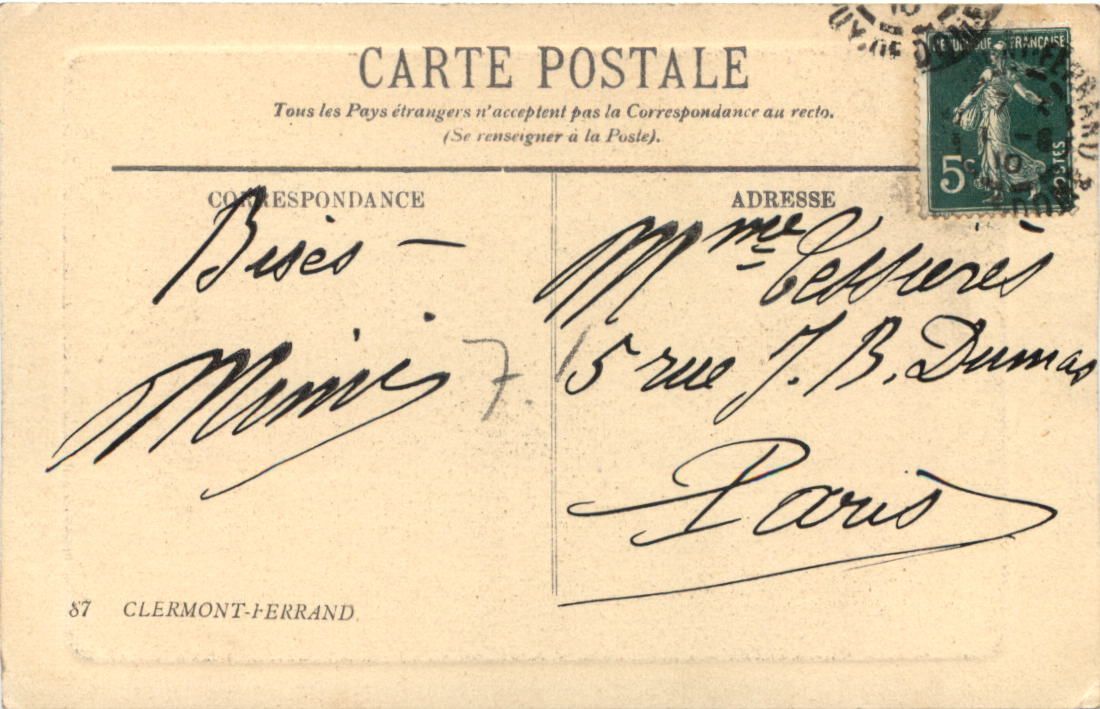 CARTE POSTALE
Tous les Pays étrangers n'acceptent pas la Correspondance au recto.
(Se renseigner à la Poste).
CORRESPONDANCE
Bises —
Mimi
7.
87 CLERMONT-FERRAND
ADRESSE
Mme Tessières
5 rue J. B. Dumas
Paris
REPUBLIQUE FRANÇAISE
5c
POSTES
10